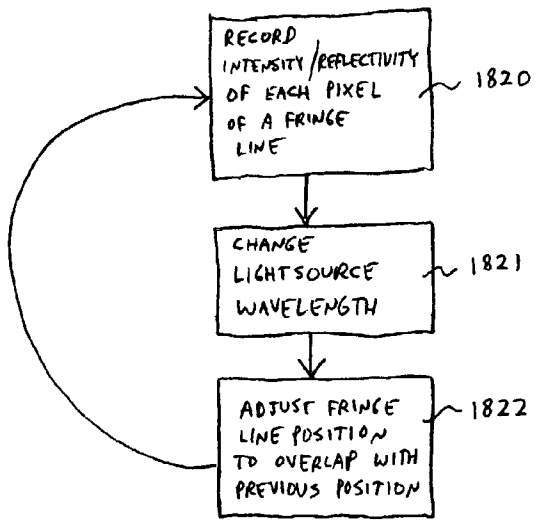 RECORD
INTENSITY/REFLECTIVITY
OF EACH PIXEL
OF A FRINGE
LINE
1820
CHANGE
LIGHTSOURCE
WAVELENGTH
1821
ADJUST FRINGE
LINE POSITION
TO OVERLAP WITH
PREVIOUS POSITION
1822